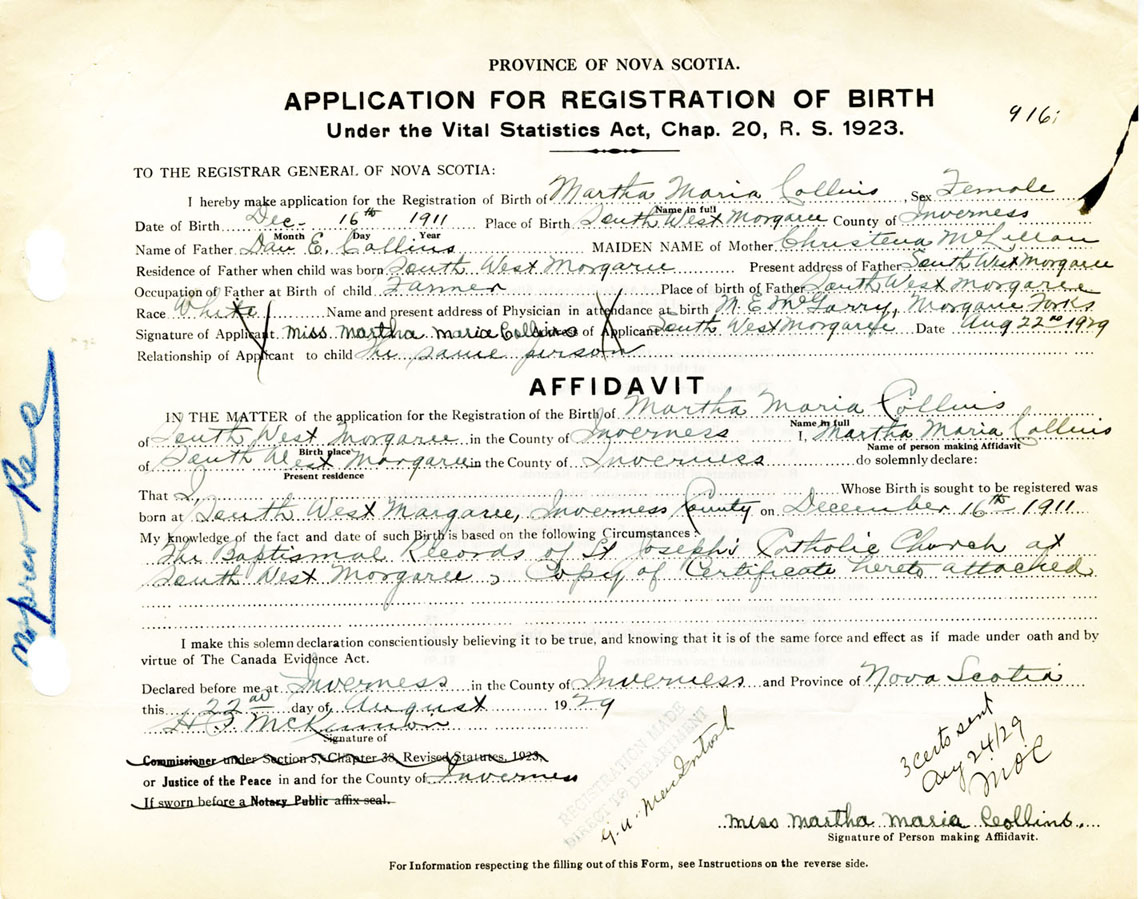 PROVINCE OF NOVA SCOTIA.
APPLICATION FOR REGISTRATION OF BIRTH
916
Under the Vital Statistics Act, Chap. 20, R. S. 1923.
TO THE REGISTRAR GENERAL OF NOVA SCOTIA:
I hereby make application for the Registration of Birth of Martha Maria Collins Sex Female
Name in full
Date of Birth Dec. 16th 1911 Place of Birth South West Morgaree County of Inverness
Month Day Year
Name of Father Dan E. Collins MAIDEN NAME of Mother Christena McLellan
Residence of Father when child was born South West Morgaree Present address of Father South West Morgaree
Occupation of Father at Birth of child Farmer Place of birth of Father South West Morgaree
Race White Name and present address of Physician in attendance at birth M. E. McGarry, Morgaree Forks
Signature of Applicant Miss Martha Maria Collins of Applicant South West Morgaree Date Aug 22nd 1929
Relationship of Applicant to child The same person
AFFIDAVIT
IN THE MATTER of the application for the Registration of the Birth of Martha Maria Collins
Name in full
of South West Morgaree in the County of Inverness I, Martha Maria Collins
Birth place Name of person making Affidavit
of South West Morgaree in the County of Inverness do solemnly declare:
Present residence
That I Whose Birth is sought to be registered was
born at South West Margaree, Inverness County on December 16th 1911
My knowledge of the fact and date of such Birth is based on the following Circumstances:
The Baptismal Records of St Joseph's Catholic Church at
South West Morgaree, Copy of Certificate hereto attached
I make this solemn declaration conscientiously believing it to be true, and knowing that it is of the same force and effect as if made under oath and by
virtue of The Canada Evidence Act.
Declared before me at Inverness in the County of Inverness and Province of Nova Scotia
this 22nd day of August 1929
McKinnon
Signature of
Commissioner under Section 5, Chapter 38, Revised Statutes, 1923,
or Justice of the Peace in and for the County of Inverness
If sworn before a Notary Public affix seal.
REGISTRATION MADE
DIRECT TO DEPARTMENT
MacIntosh
3 certs sent
Aug 24/29
MOC
Miss Martha Maria Collins.
Signature of Person making Affidavit.
For Information respecting the filling out of this Form, see Instructions on the reverse side.